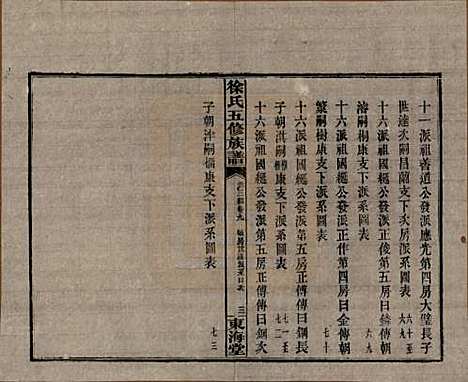 十一派祖善道公發派應先第四房大璧長子
世達次嗣昌蘭支下次房派系圖表 六十至六九
十六派祖國經公發派正俊第四房日鏻傳朝
濬嗣樹康支下派系圖表 六九
十六派祖國經公發派正作第四房日金傳朝
嗣樹康支下派系圖表 七十
十六派祖國經公發派第五房正傳傳日鋼長
子朝洪嗣 支下派系圖表 七一至七二
十六派祖國經公發派第五房正傳傳日鋼次
徐氏五修族譜
三
東海堂
子朝泮嗣 康支下派系圖表 七三